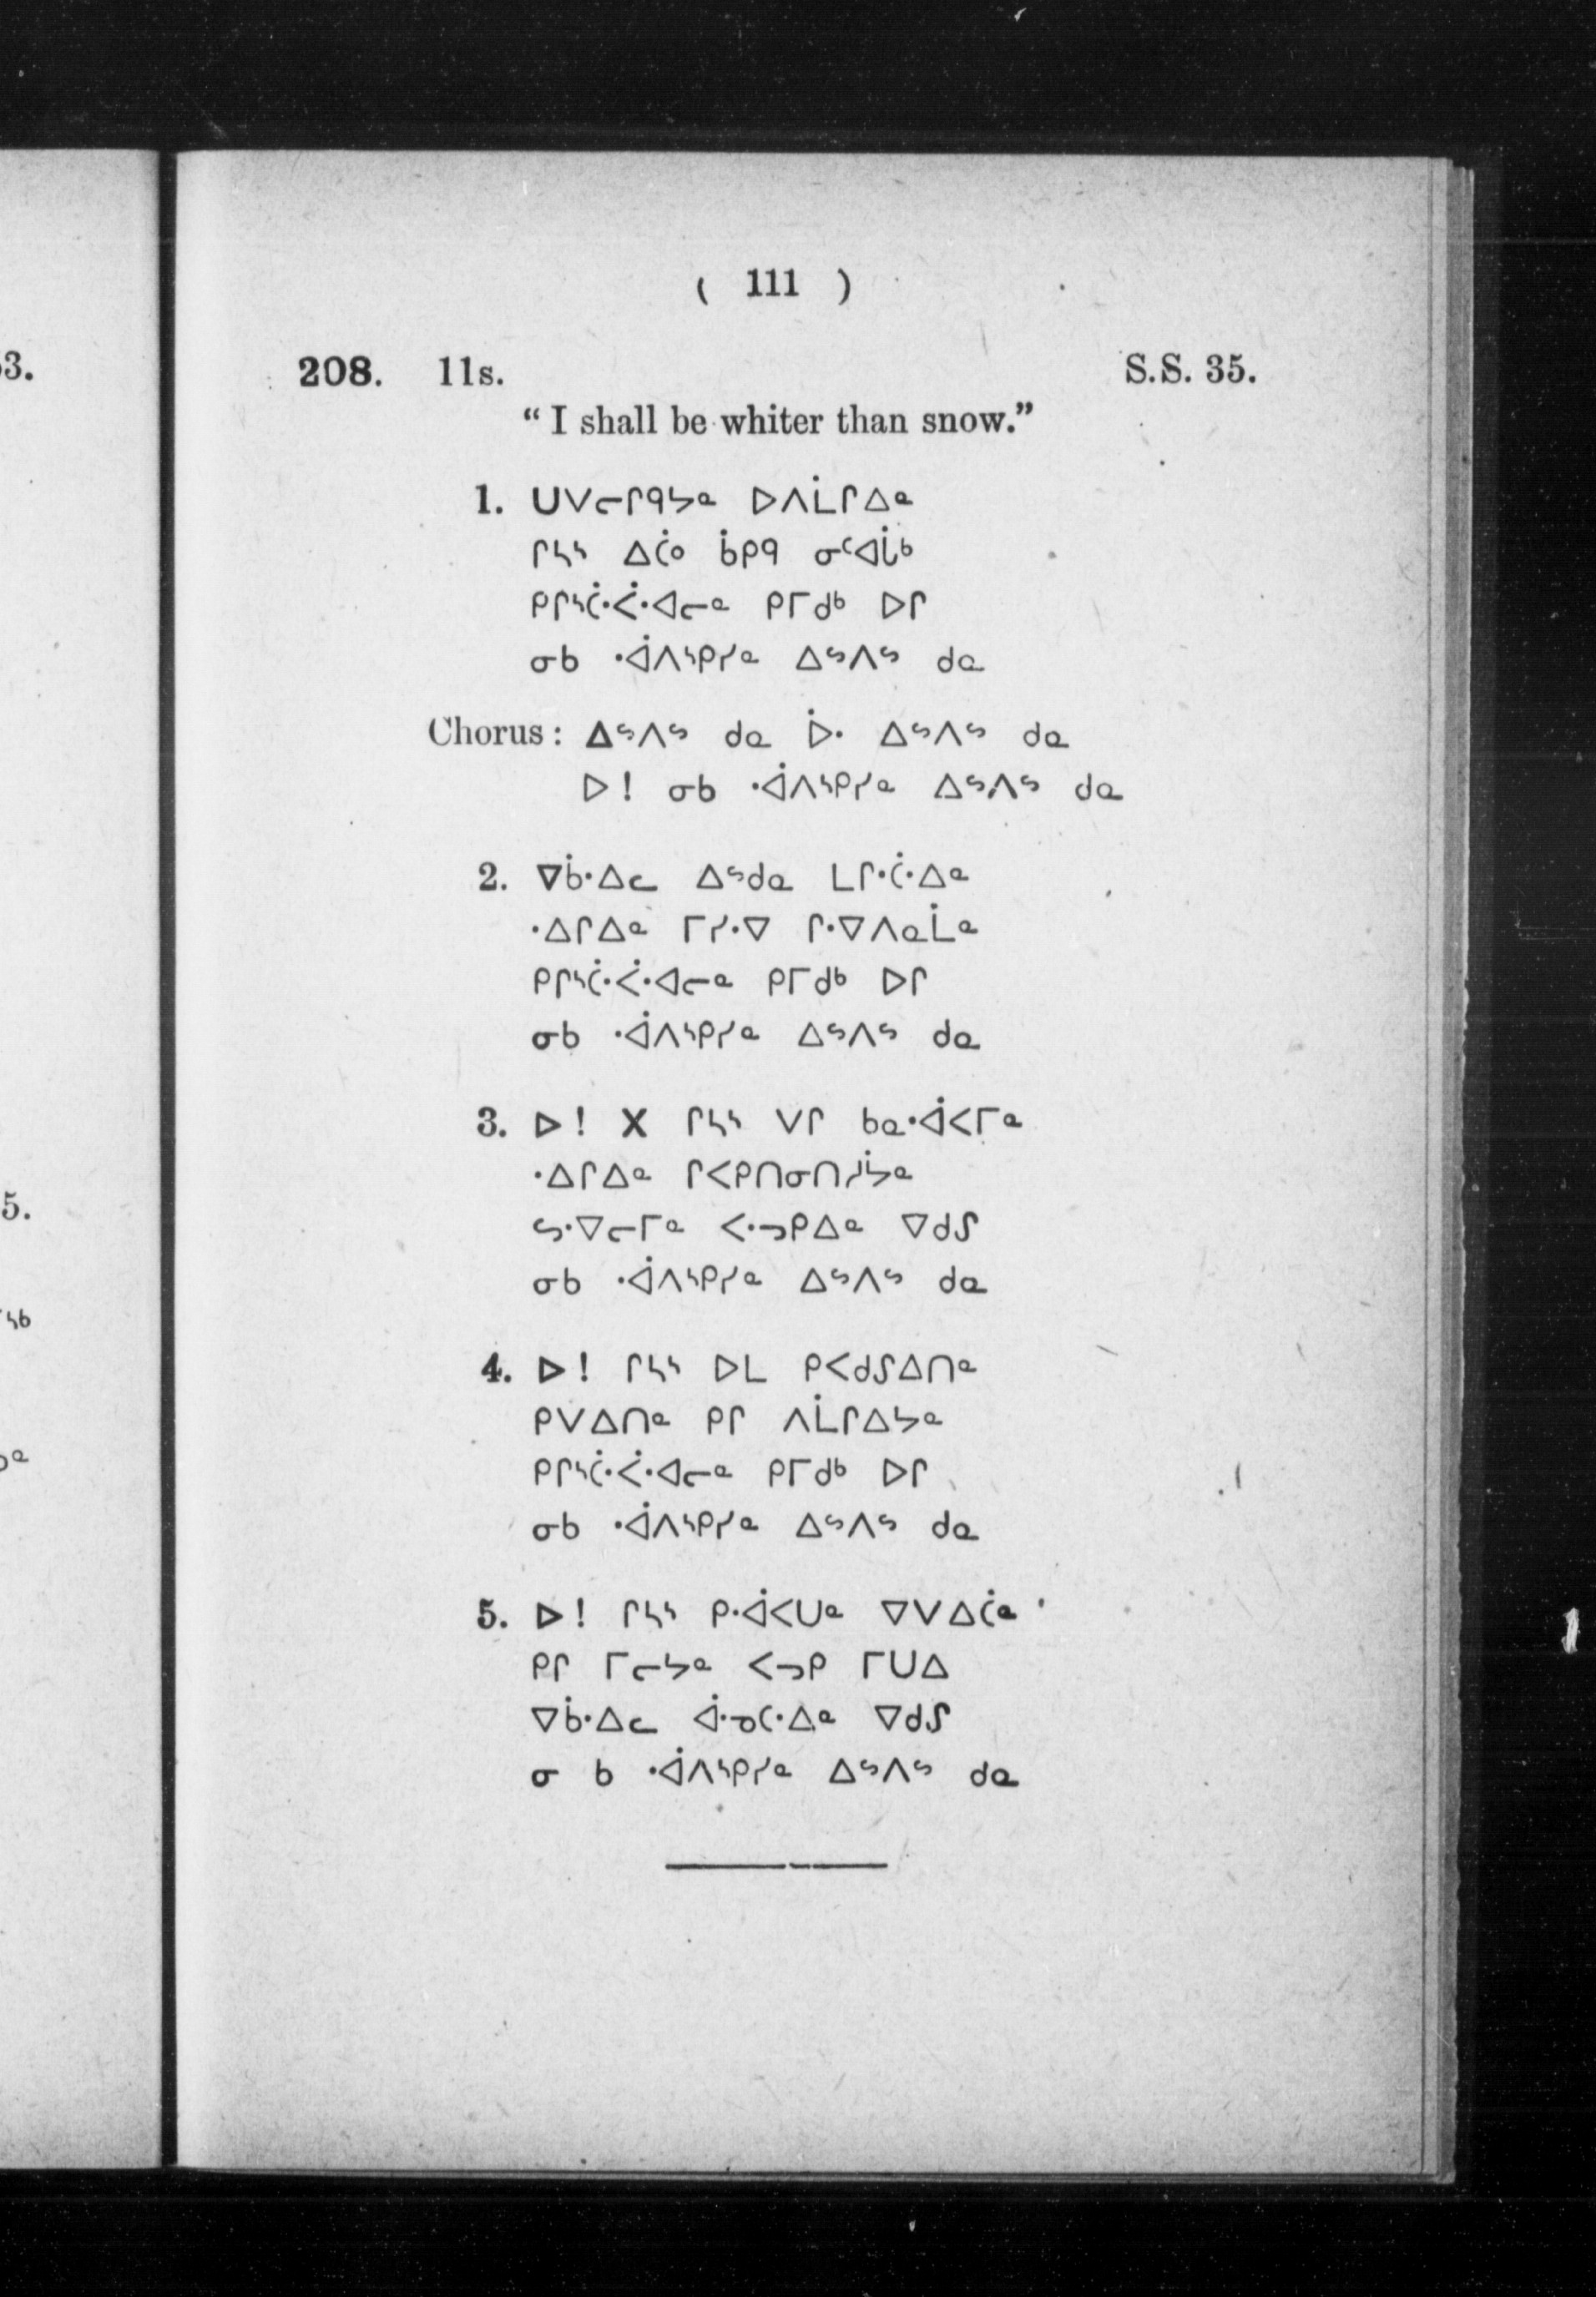 ( 111 )
208. 11s. S.S. 35.
“ I shall be whiter than snow.”
1. ᑌᐯᓕᒋᑫᔭᓐ ᐅᐱᒫᒋᐃᓐ
ᒋᓴᔅ ᐃᑖᐤ ᑳᑭᑫ ᓂᑕᐊᒑᒃ
ᑭᒋᔅᑖᐧᐹᐧᐊᓕᓐ ᑭᒥᑯᒃ ᐅᒋ
ᓂᑲ ᐧᐋᐱᔅᑭᓯᓐ ᐃᔥᐱᔥ ᑯᓇ
Chorus : ᐃᔥᐱᔥ ᑯᓇ ᐆᐧ ᐃᔥᐱᔥ ᑯᓇ
ᐅ ! ᓂᑲ ᐧᐋᐱᔅᑭᓯᓐ ᐃᔥᐱᔥ ᑯᓇ
2. ᐁᑳᐧᐃᓚ ᐃᔥᑯᓇ ᒪᒋᐧᑖᐧᐃᓐ
ᐧᐃᒋᐃᓐ ᒥᓯᐧᐁ ᒋᐧᐁᐱᓇᒫᓐ
ᑭᒋᔅᑖᐧᐹᐧᐊᓕᓐ ᑭᒥᑯᒃ ᐅᒋ
ᓂᑲ ᐧᐋᐱᔅᑭᓯᓐ ᐃᔥᐱᔥ ᑯᓇ
3. ᐅ ! ᕽ ᒋᓴᔅ ᐯᒋ ᑲᓇᐧᐋᐸᒥᓐ
ᐧᐃᒋᐃᓐ ᒋᐸᑭᑎᓂᑎᓱᔮᓐ
ᔕᐧᐁᓕᒥᓐ ᐸᐧᓗᑭᐃᓐ ᐁᑯᔑ
ᓂᑲ ᐧᐋᐱᔅᑭᓯᓐ ᐃᔥᐱᔥ ᑯᓇ
4. ᐅ ! ᒋᓴᔅ ᐅᒪ ᑭᐸᑯᔑᐃᑎᓐ
ᑭᐯᐃᑎᓐ ᑭᒋ ᐱᒫᒋᐃᔭᓐ
ᑭᒋᔅᑖᐧᐹᐧᐊᓕᓐ ᑭᒥᑯᒃ ᐅᒋ
ᓂᑲ ᐧᐋᐱᔅᑭᓯᓐ ᐃᔥᐱᔥ ᑯᓇ
5. ᐅ ! ᒋᓴᔅ ᑭᐧᐋᐸᑌᓐ ᐁᐯᐃᑖᓐ
ᑭᒋ ᒥᓕᔭᓐ ᐸᓗᑭ ᒥᑌᐃ
ᐁᑳᐧᐃᓚ ᐋᐧᓄᑕᐧᐃᓐ ᐁᑯᔑ
ᓂ ᑲ ᐧᐋᐱᔅᑭᓯᓐ ᐃᔥᐱᔥ ᑯᓇ